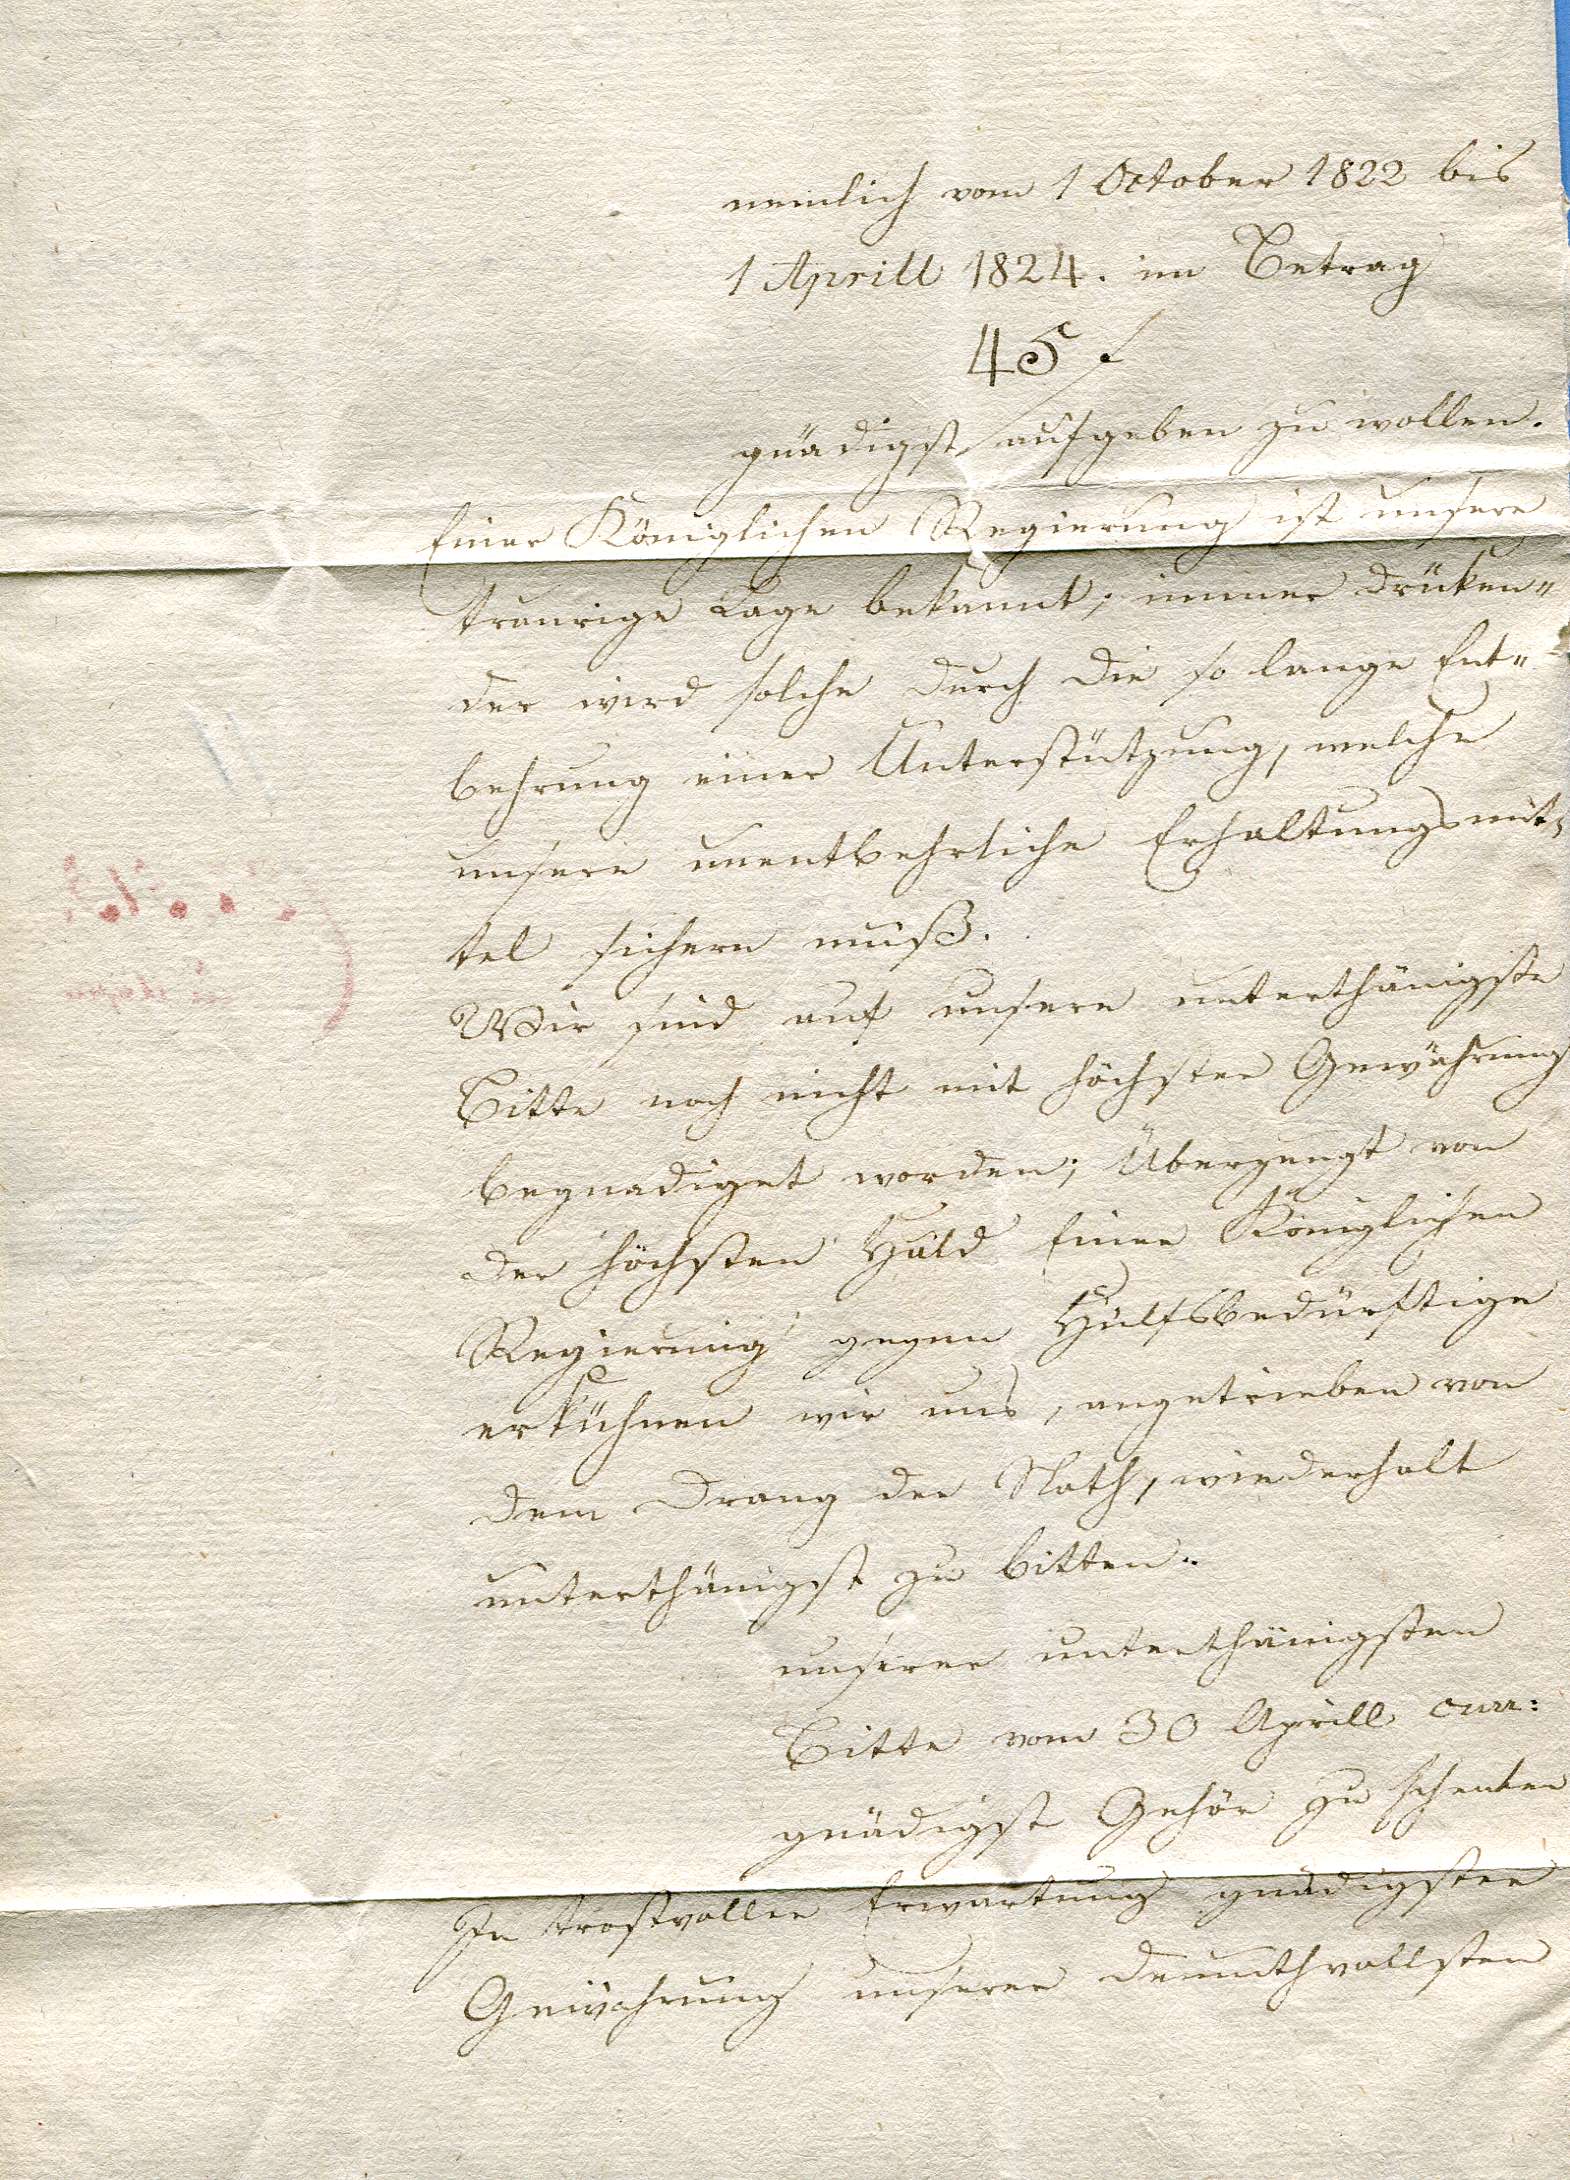 nemlich vom 1 October 1822 bis
1 Aprill 1824. im Betrag
45 f
gnädigst aufgeben zu wollen.
Einer Königlichen Regierung ist unsere
traurige Lage bekannt; immer drüken„
der wird solche durch die so lange Ent„
behrung einer Unterstützung, welche
unsere unentbehrliche Erhaltungsmit„
tel sichern muß.
Wir sind auf unsere unterthänigste
Bitte noch nicht mit höchster Gewährung
begnadiget worden; Überzeugt von
der höchsten Huld Einer Königlichen
Regierung gegen Hülfsbedürftige
erkühnen wir uns, angetrieben von
dem Drang der Noth, wiederholt
unterthänigst zu bitten.
unserer unterthänigsten
Bitte vom 30 Aprill curr:
gnädigst Gehör zu schenken
In trostvoller Erwartung gnädigster
Gewährung unserer demuthvollsten